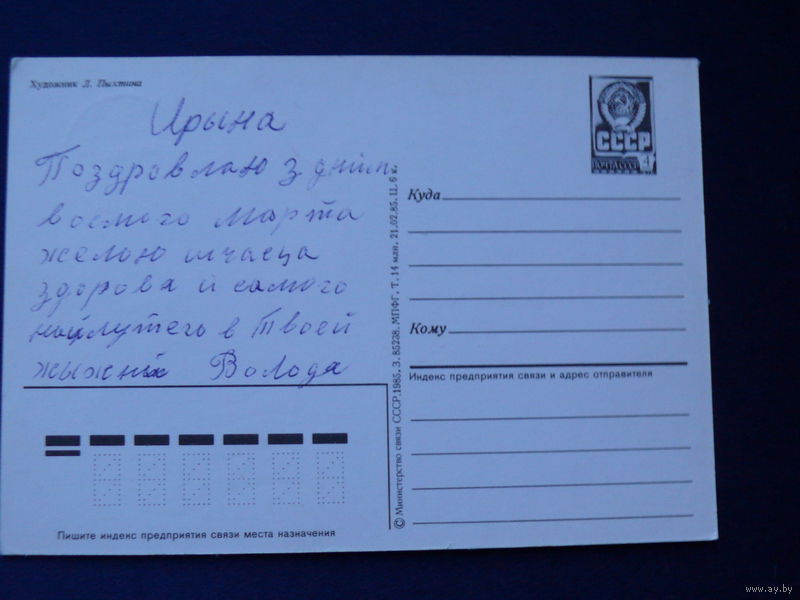 Художник Л. Пыхтина
Ирына
Поздровлаю з днём
восмого марта
желою шчасца
здоровя и самого
найлутего в твоей
жыжни Волода
СССР
ПОЧТА СССР 4
Куда
Кому
Индекс предприятия связи и адрес отправителя
© Министерство связи СССР, 1985. З. 85238. МПФГ. Т. 14 млн. 21.02.85. Ц. 6 к.
Пишите индекс предприятия связи места назначения
www.ay.by